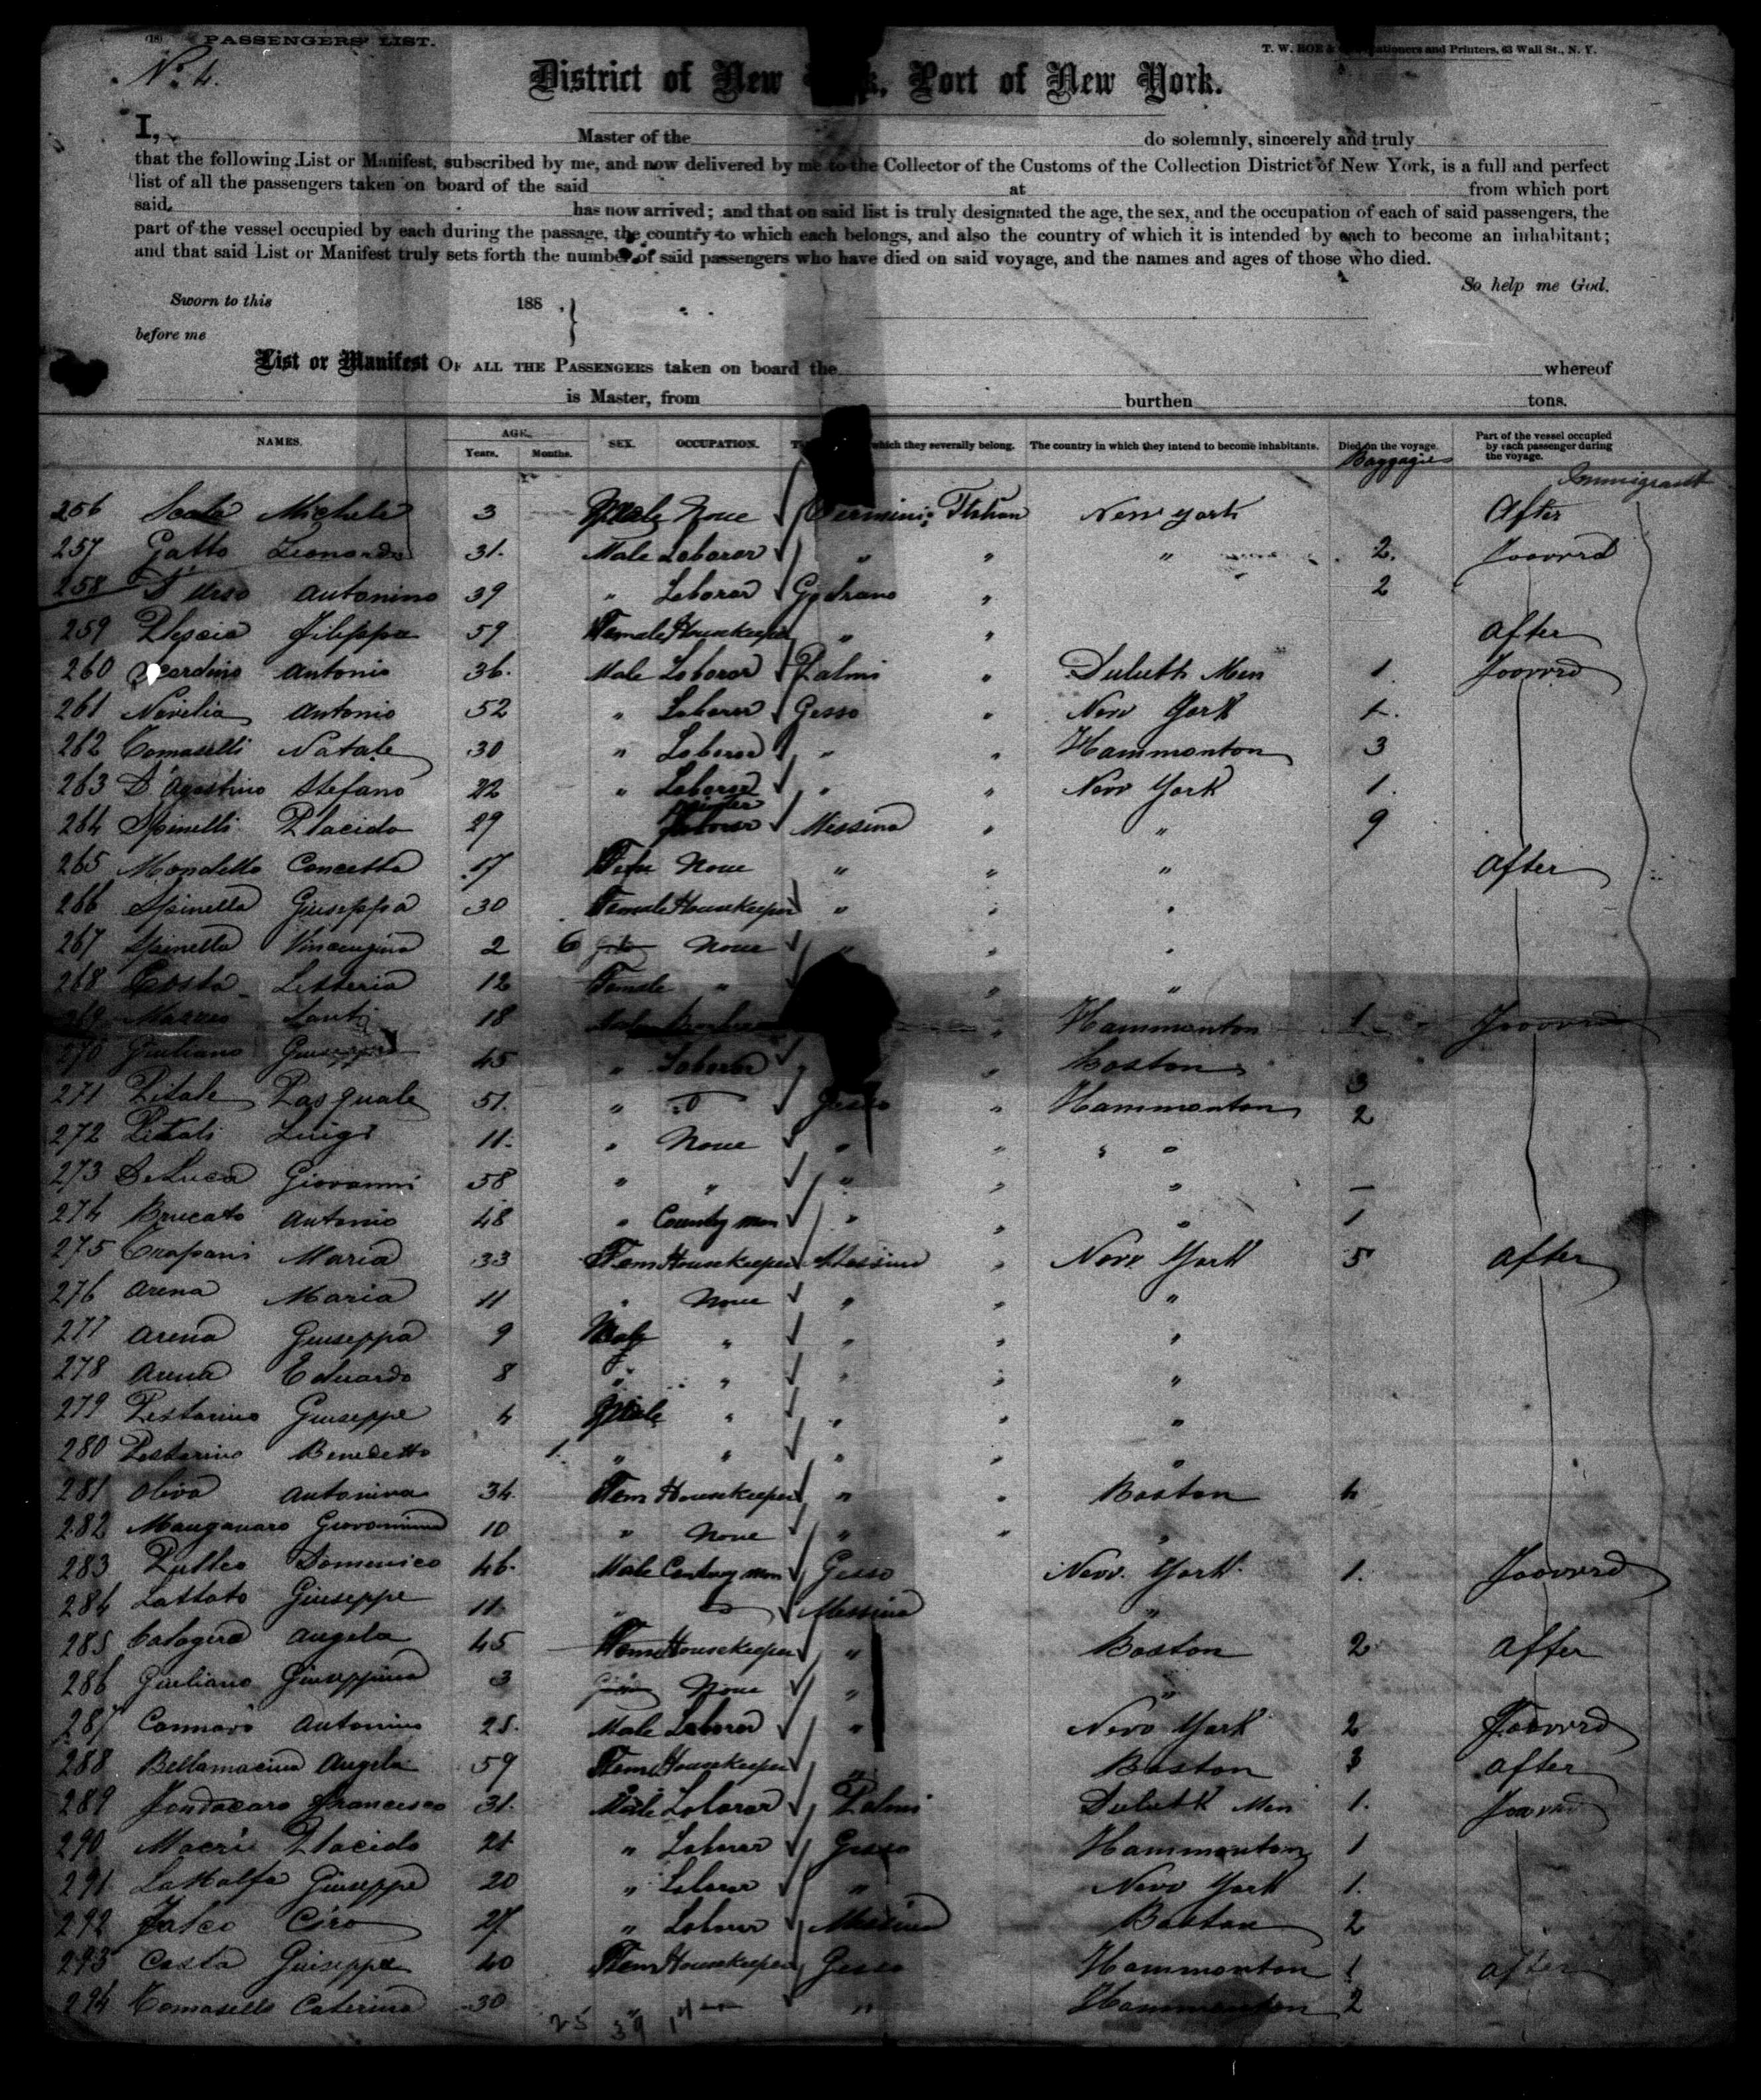 (18) PASSENGERS' LIST.
T. W. ROE & Stationers and Printers, 63 Wall St., N. Y.
No 4.
District of New York, Port of New York.
I, Master of the do solemnly, sincerely and truly
that the following List or Manifest, subscribed by me, and now delivered by me to the Collector of the Customs of the Collection District of New York, is a full and perfect
list of all the passengers taken on board of the said at from which port
said has now arrived; and that on said list is truly designated the age, the sex, and the occupation of each of said passengers, the
part of the vessel occupied by each during the passage, the country to which each belongs, and also the country of which it is intended by each to become an inhabitant;
and that said List or Manifest truly sets forth the number of said passengers who have died on said voyage, and the names and ages of those who died.
So help me God.
Sworn to this 188
before me
List or Manifest OF ALL THE PASSENGERS taken on board the whereof
is Master, from burthen tons.
NAMES. AGE. Years. Months. SEX. OCCUPATION. which they severally belong. The country in which they intend to become inhabitants. Died on the voyage. Part of the vessel occupied by each passenger during the voyage.
Baggagies
Immigrant
256 Scala Michele 3 Male None Termini New York After
257 Gatto Leonardo 31. Male Laborer " " " 2.
258 D'Urso Antonino 39 " Laborer Godrano " 2
259 Plescia Filippa 59 Female Housekeeper " " After
260 Antonio 36. Male Laborer Palmi " Duluth Men 1.
261 Antonio 52 " Laborer Gesso " New York 1.
262 Tomaselli Natale 30 " Laborer " " Hammonton 3
263 D'Agostino Stefano 22 " Laborer " " New York 1.
264 Spinelli Placido 29 Messina " " 9
265 Mondello Concetta 17 None " " " After
266 Spinella Giuseppa 30 Female Housekeeper " " "
267 Spinella Vincenzina 2 6 None " " "
268 Costa Letteria 12 Female " " "
269 Santi 18 " Hammonton 1
270 Giuliano Giuseppe 45 " Laborer " Boston 3
271 Pitale Pasquale 51. " Gesso " Hammonton 2
272 Pitali Luigi 11. " None " " "
273 DeLuca Giovanni 58 " " " " " —
274 Brucato Antonio 48 " Country man " " " 1
275 Trapani Maria 33 Fem Housekeeper Messina " New York 5 After
276 Arena Maria 11 " None " " "
277 Arena Giuseppa 9 Male " " " "
278 Arena Eduardo 8 " " " " "
279 Pestarino Giuseppe 4 Male " " " "
280 Pestarino Benedetto 1. " " " " "
281 Oliva Antonina 34. Fem Housekeeper " " Boston 4
282 Manganaro Giovannina 10 " None " " "
283 Domenico 46. Male Gesso New York 1.
284 Lattato Giuseppe 11. " Messina "
285 Calogera Angela 45 Fem Housekeeper " Boston 2 After
286 Giuliano Giuseppina 3 None " "
287 Antonino 25. Male Laborer " New York 2
288 Bellamacina Angela 59 Fem Housekeeper " Boston 3 After
289 Fondacaro Francesco 31. Male Laborer Palmi Duluth Men 1.
290 Macri Placido 21 " Laborer Gesso Hammonton 1
291 LaMalfa Giuseppe 20 " Laborer " New York 1.
292 Falco Ciro 27 " Laborer Messina Boston 2
293 Costa Giuseppa 40 Fem Housekeeper Gesso Hammonton 1 After
294 Tomasello Caterina 30 " " Hammonton 2
25 39